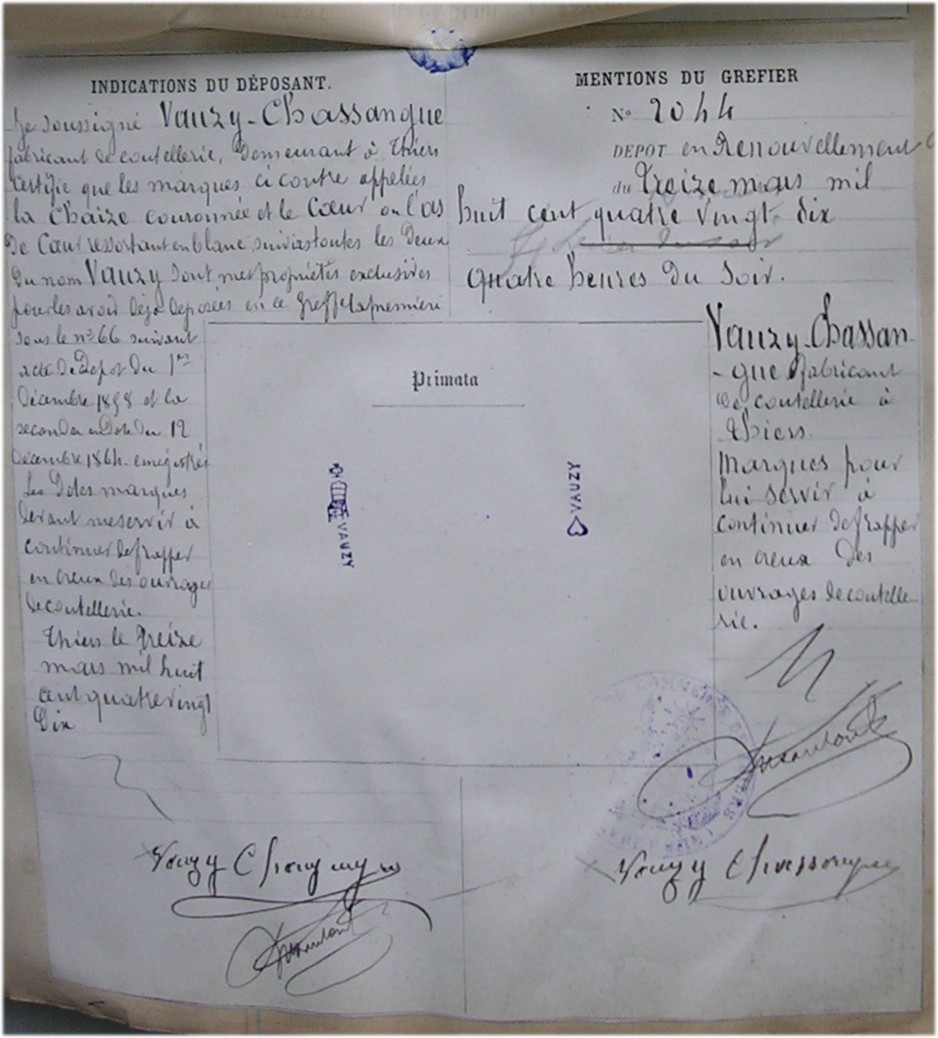 INDICATIONS DU DÉPOSANT.
Je soussigné Vauzy-Chassangue
fabricant de coutellerie, Demeurant à Thiers
certifie que les marques ci contre appelées
la Chaize couronnée et le Cœur ou l'as
De Cœur ressortant en blanc suivies toutes les Deux
Du nom Vauzy sont mes propriétés exclusives
pour les avoir Déjà Déposées en ce greffe la première
sous le n° 66 suivant
acte De Depot Du 1er
Décembre 1858 et la
seconde en Date Du 12
Décembre 1864
Les Dites marques
Devant me servir à
continuer De frapper
en creux des ouvrages
De coutellerie.
Thiers le Treize
mars mil huit
cent quatre vingt
Dix
Vauzy Chassangue
MENTIONS DU GREFIER
N° 2044
DEPOT en Renouvellement
du Treize mars mil
huit cent quatre vingt dix
quatre heures Du Soir.
Vauzy-Chassan
-gue fabricant
De coutellerie à
Thiers.
Marques pour
lui servir à
continuer De frapper
en creux Des
ouvrages De coutelle
rie.
Primata
VAUZY
VAUZY
Vauzy Chassangue